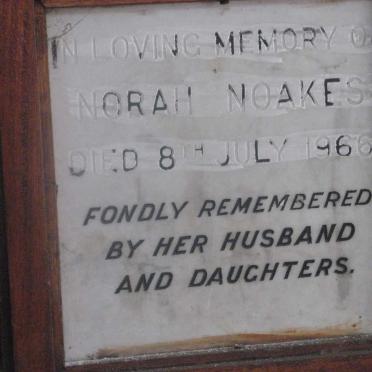 IN LOVING MEMORY O
NORAH NOAKES
DIED 8TH JULY 1966
FONDLY REMEMBERED
BY HER HUSBAND
AND DAUGHTERS.